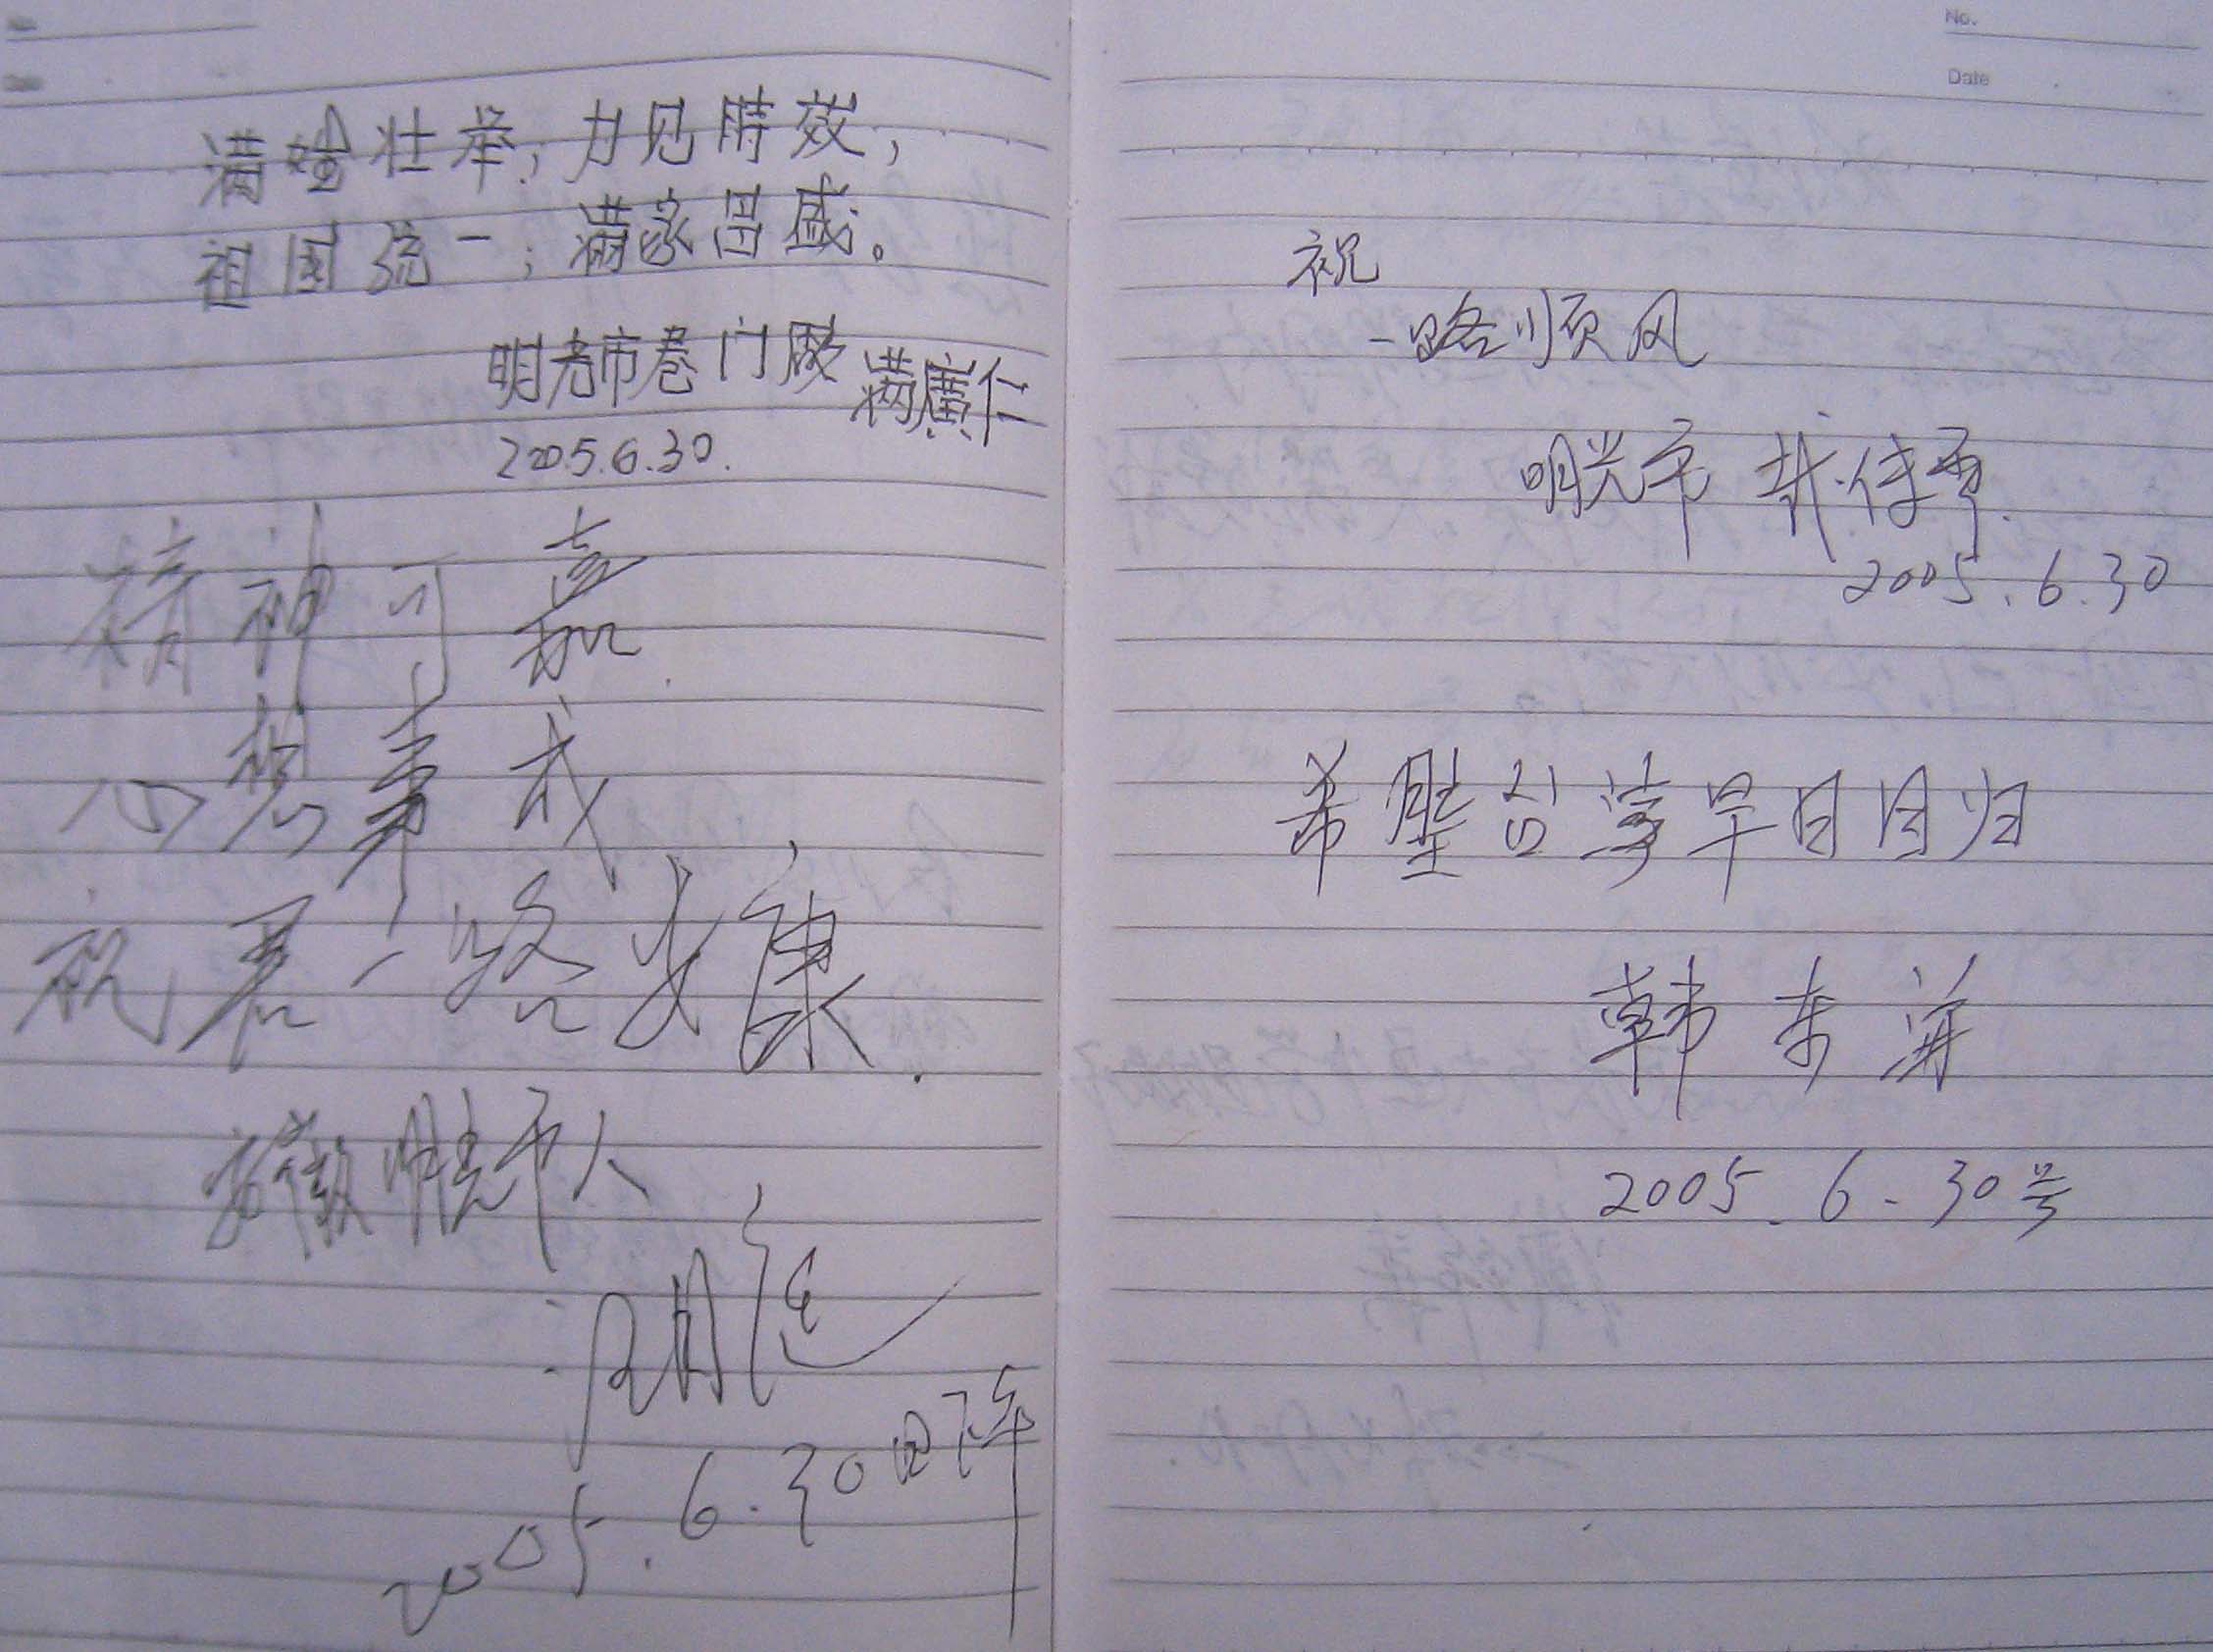 满 壮举，力见时效，
祖国统一；满家昌盛。
明光市卷门厂 满廣仁
2005.6.30.
精神可嘉
心想事成
祝君一路安康.
安徽明光市人
2005.6.30
No.
Date
祝
一路顺风
明光市
2005.6.30
希望台湾早日回归
韩东海
2005.6-30号